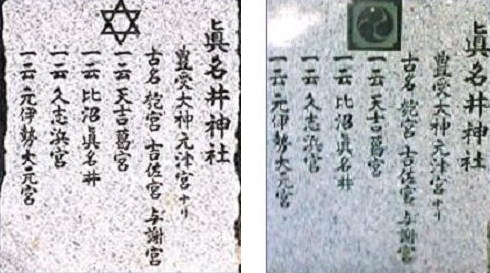 眞名井神社
豊受大神元津宮ナリ
古名 匏宮 吉佐宮 与謝宮
一云 天吉葛宮
一云 比沼眞名井
一云 久志浜宮
一云 元伊勢大元宮
眞名井神社
豊受大神元津宮ナリ
古名 匏宮 吉佐宮 与謝宮
一云 天吉葛宮
一云 比沼眞名井
一云 久志浜宮
一云 元伊勢大元宮